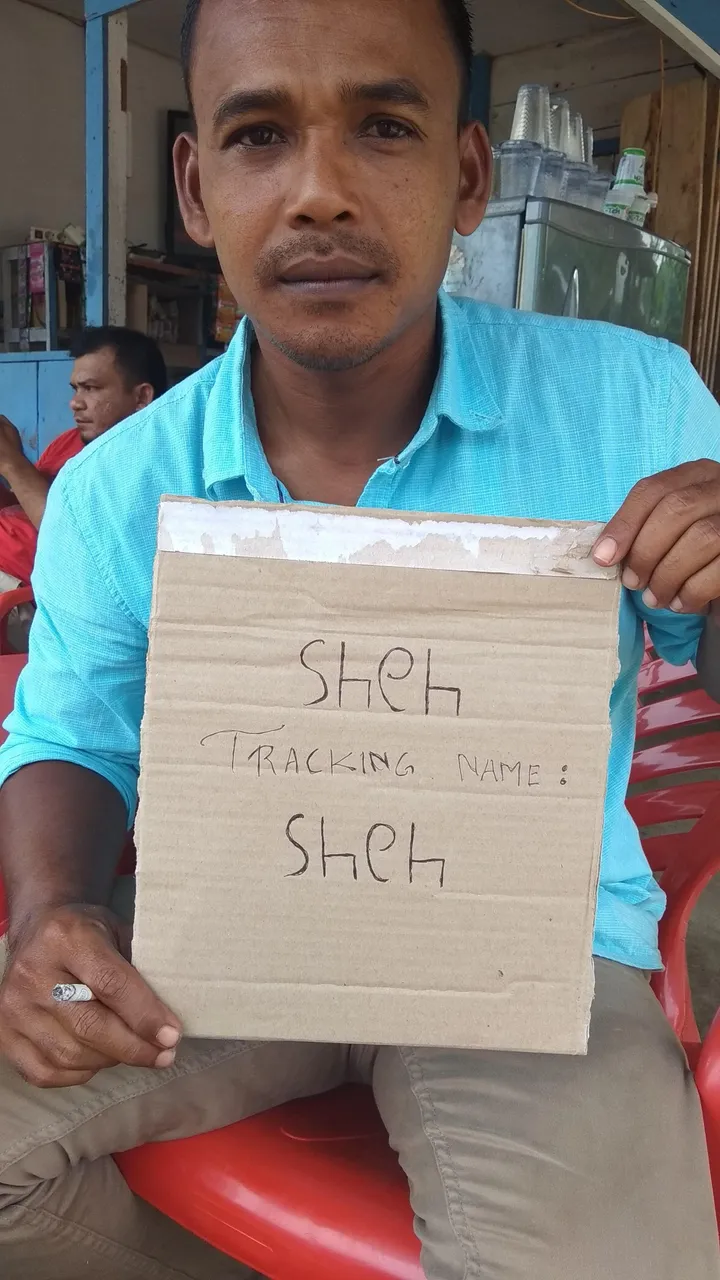 SheH
TRACKING NAME :
SheH